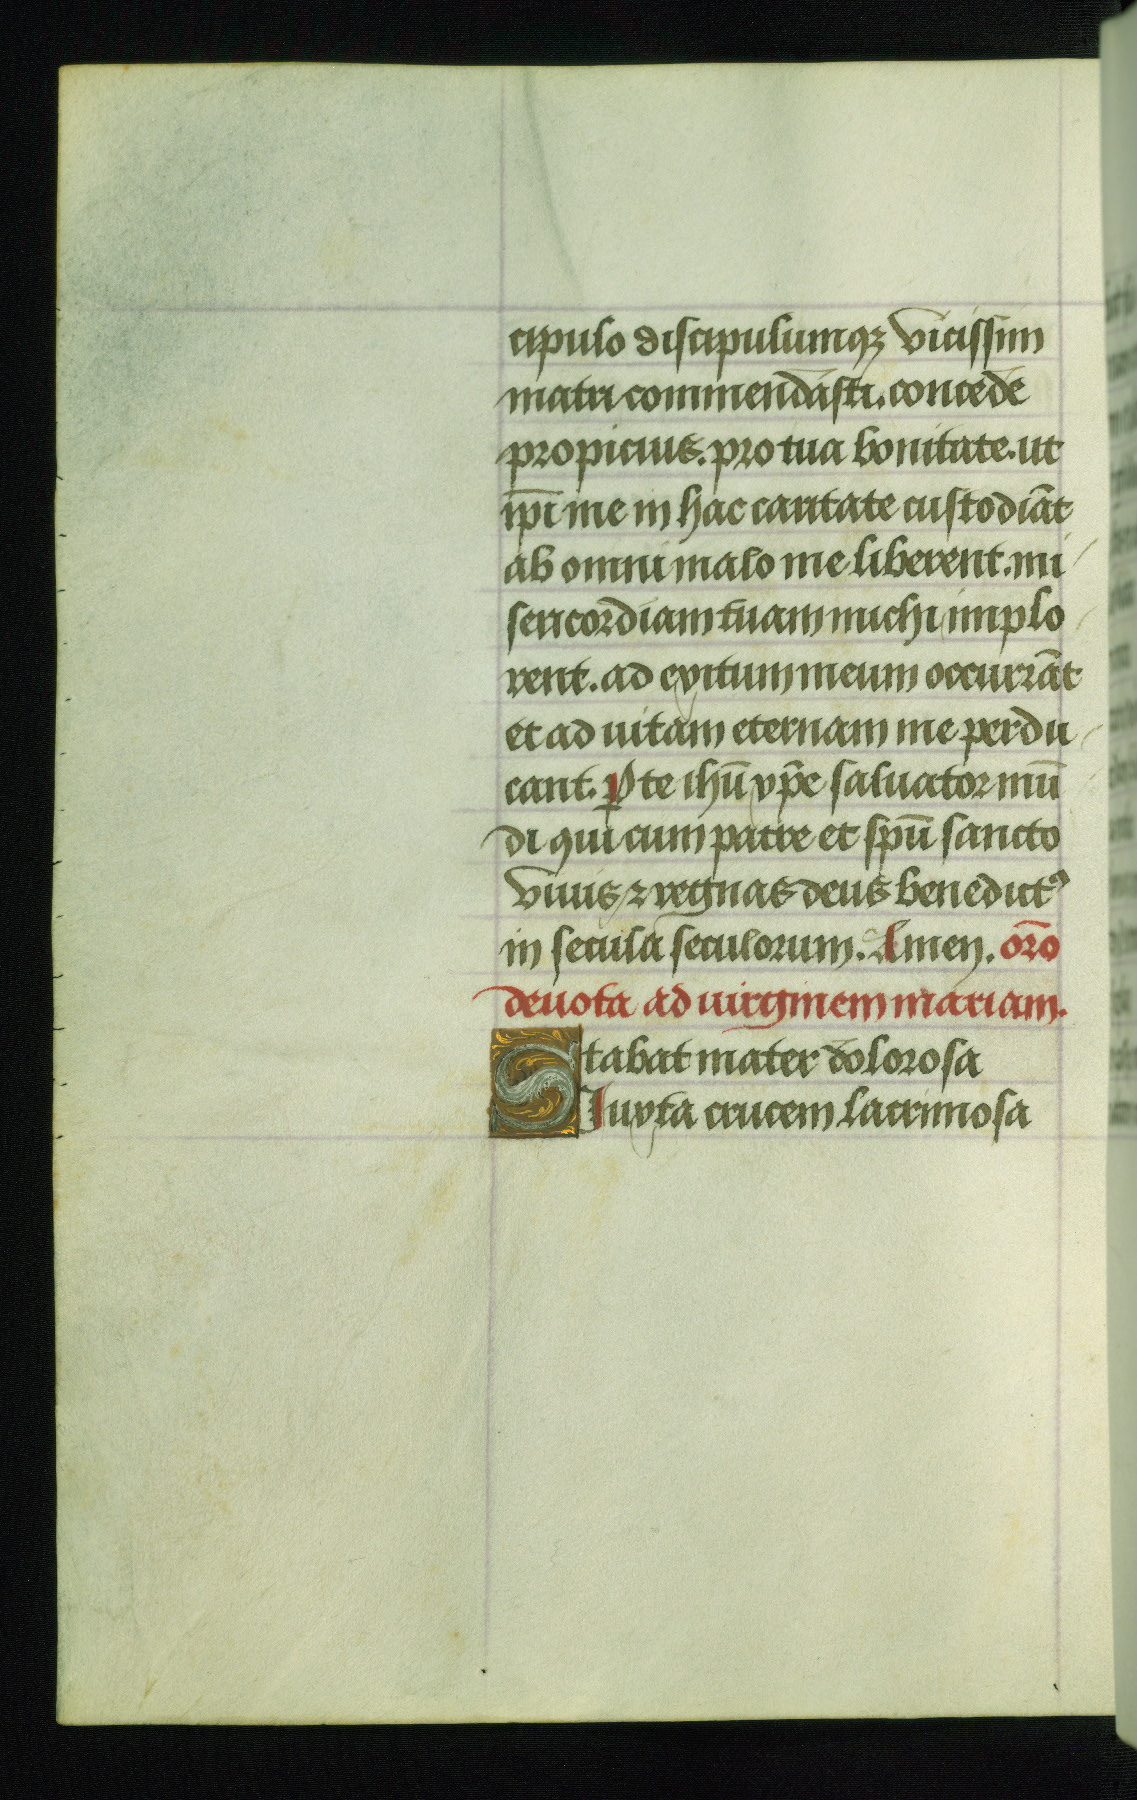 cipulo discipulumqꝫ vicissim
matri commendasti. concede
propicius. pro tua bonitate. ut
ip̄i me in hac caritate custodiāt
ab omni malo me liberent. mi
sericordiam tuam michi implo
rent. ad exitum meum occurrāt
et ad uitam eternam me perdu
cant. Ꝑ te ihū xp̄e saluator mū
di qui cum patre et spū sancto
viuis ⁊ regnas deus benedictꝰ
in secula seculorum. Amen. or̄o
deuota ad uirginem mariam.
Stabat mater dolorosa
Iuxta crucem lacrimosa